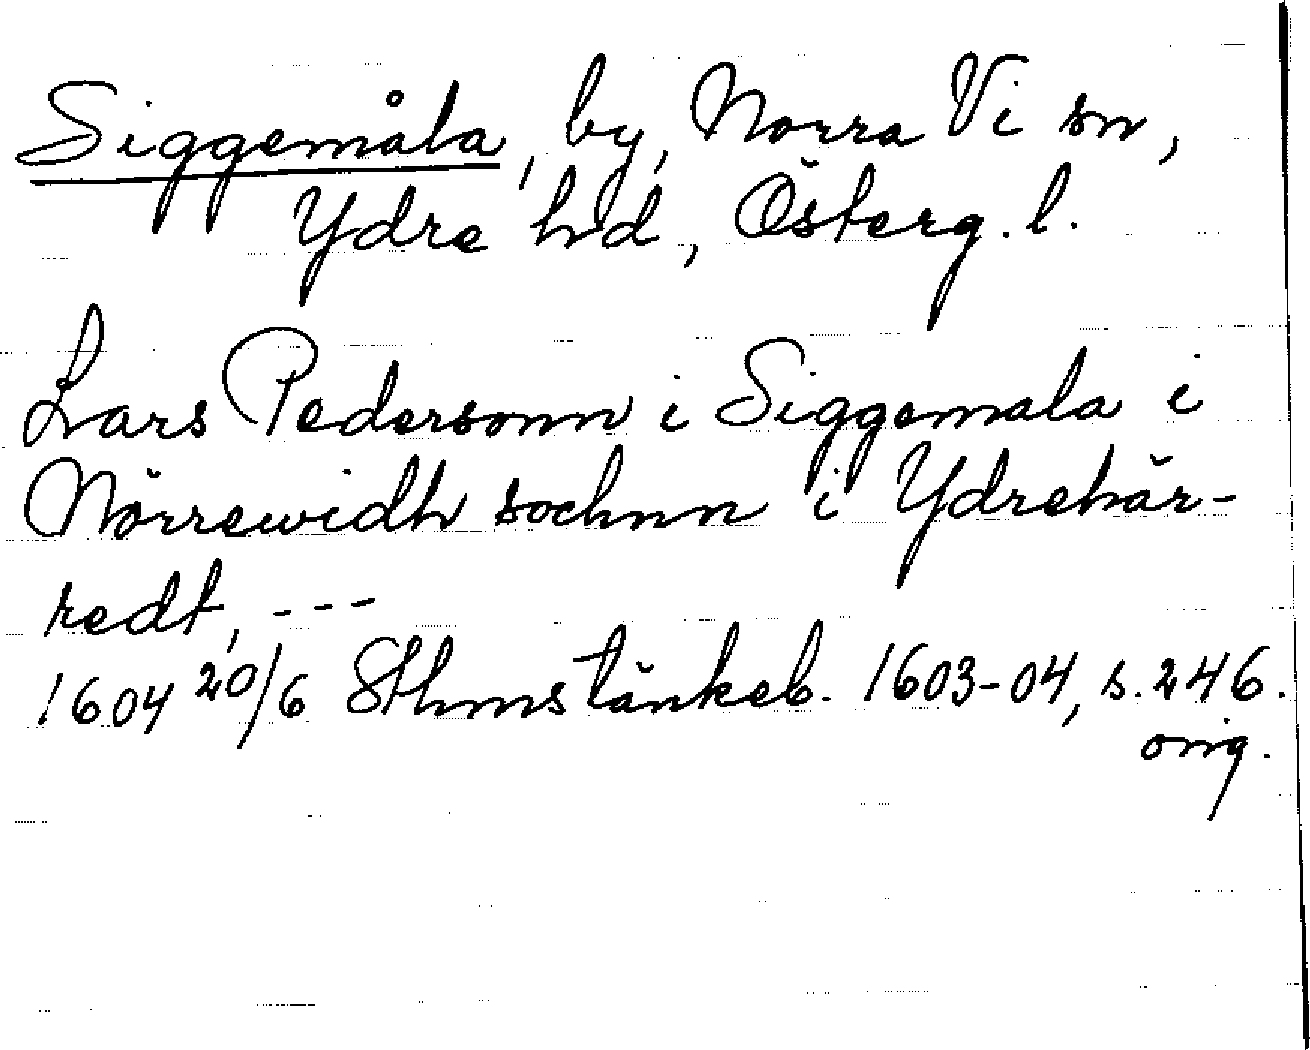 Siggemåla, by, Norra Vi sn,
Ydre hd, Österg. l.
Lars Pedersonn i Siggemala i
Nörrewidh sochnn i Ydrehär-
redt, ---
1604 20/6 Sthms tänkeb. 1603-04, s. 246.
orig.